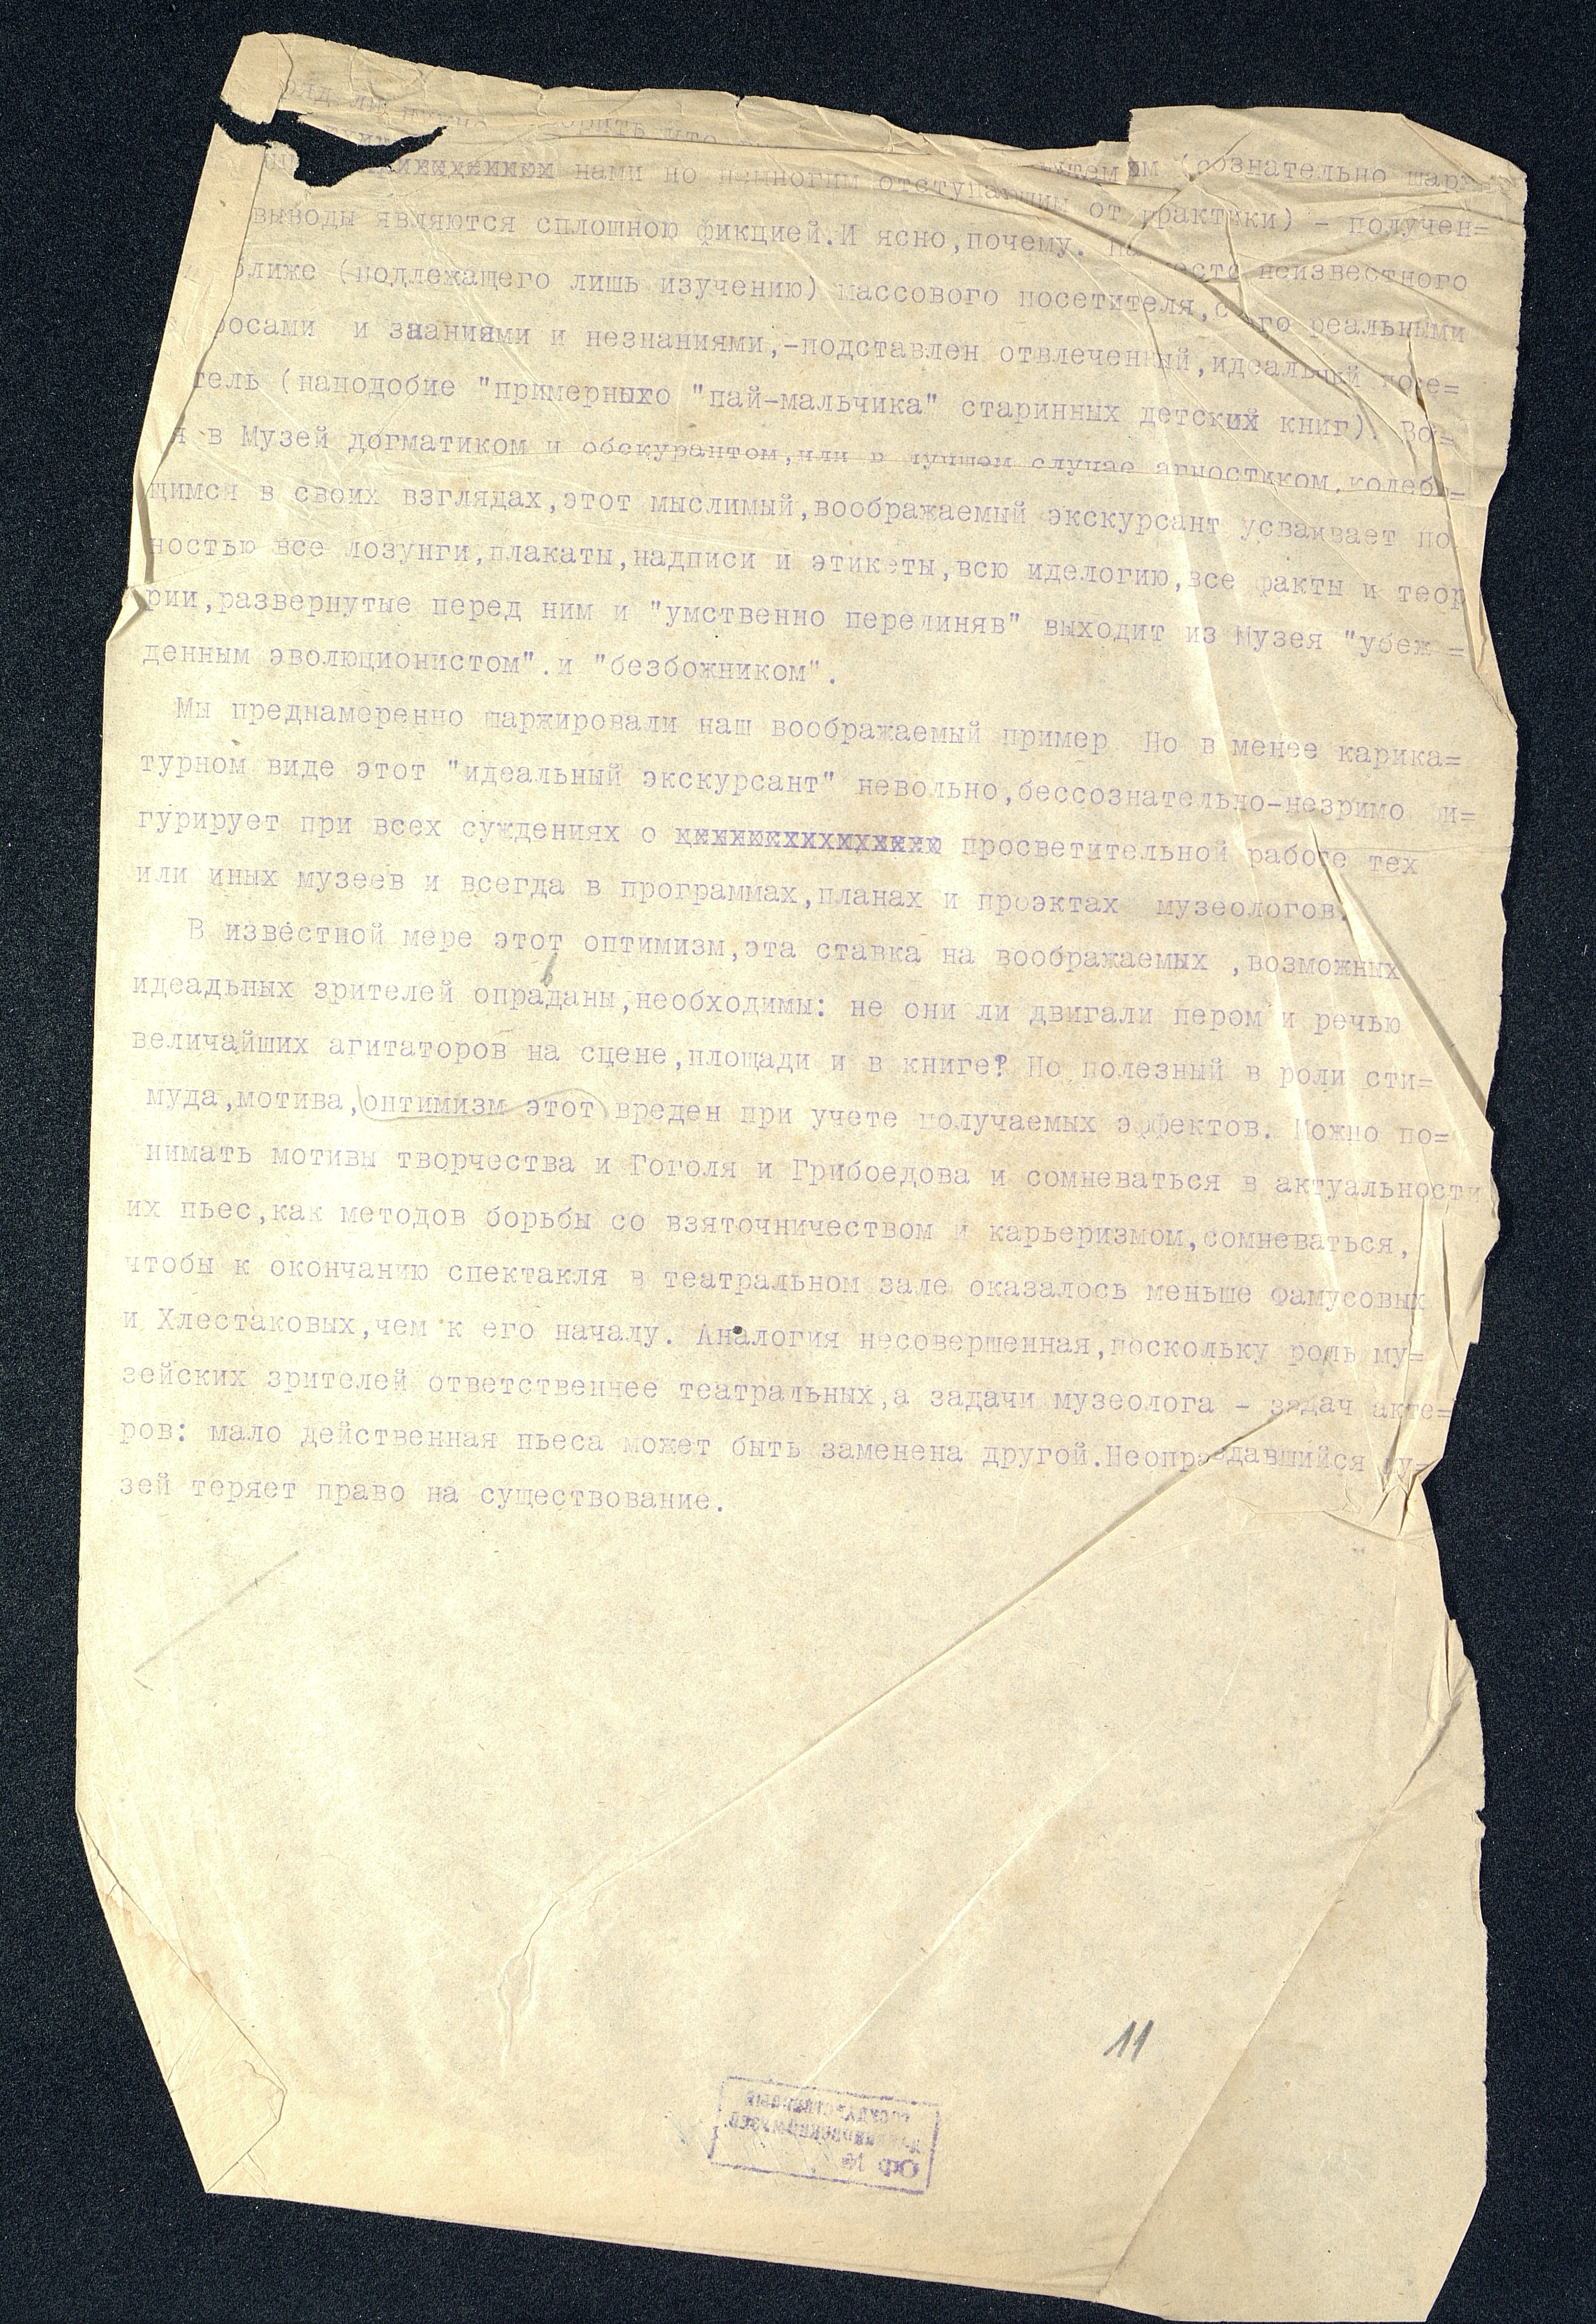 нами но немногим отступающим от практики) - получен=
выводы являются сплошною фикцией.И ясно,почему. На место неизвестного
ближе (подлежащего лишь изучению) массового посетителя,с его реальными
и знаниями и незнаниями,-подставлен отвлеченный,идеальный посе=
тель (наподобие "примерного "пай-мальчика" старинных детских книг). Во=
я в Музей догматиком и обскурантом,или в лучшем случае агностиком,колеб
щимся в своих взглядах,этот мыслимый,воображаемый экскурсант усваивает по
ностью все лозунги,плакаты,надписи и этикеты,всю иделогию,все факты и теор
рии,развернутые перед ним и "умственно перелиняв" выходит из Музея "убеж =
денным эволюционистом".и "безбожником".
Мы преднамеренно шаржировали наш воображаемый пример Но в менее карика=
турном виде этот "идеальный экскурсант" невольно,бессознательно-незримо и=
гурирует при всех суждениях о просветительной работе тех
или иных музеев и всегда в программах,планах и проэктах музеологов.
В известной мере этот оптимизм,эта ставка на воображаемых ,возможных
идеадьных зрителей опраᵛданы,необходимы: не они ли двигали пером и речью
величайших агитаторов на сцене,площади и в книге? Но полезный в роли сти=
муда,мотива,оптимизм этот вреден при учете получаемых эффектов. Можно по=
нимать мотивы творчества и Гоголя и Грибоедова и сомневаться в актуальности
их пьес,как методов борьбы со взяточничеством и карьеризмом,сомневаться,
чтобы к окончанию спектакля в театральном зале оказалось меньше Фамусовых
и Хлестаковых,чем к его началу. Аналогия несовершенная,поскольку роль му=
зейских зрителей ответственнее театральных,а задачи музеолога - задач акте=
ров: мало действенная пьеса может быть заменена другой.Неоправдавшийся му=
зей теряет право на существование.
11
ГОСУДАРСТВЕННЫЙ
ДАРВИНОВСКИЙ МУЗЕЙ
Оф №